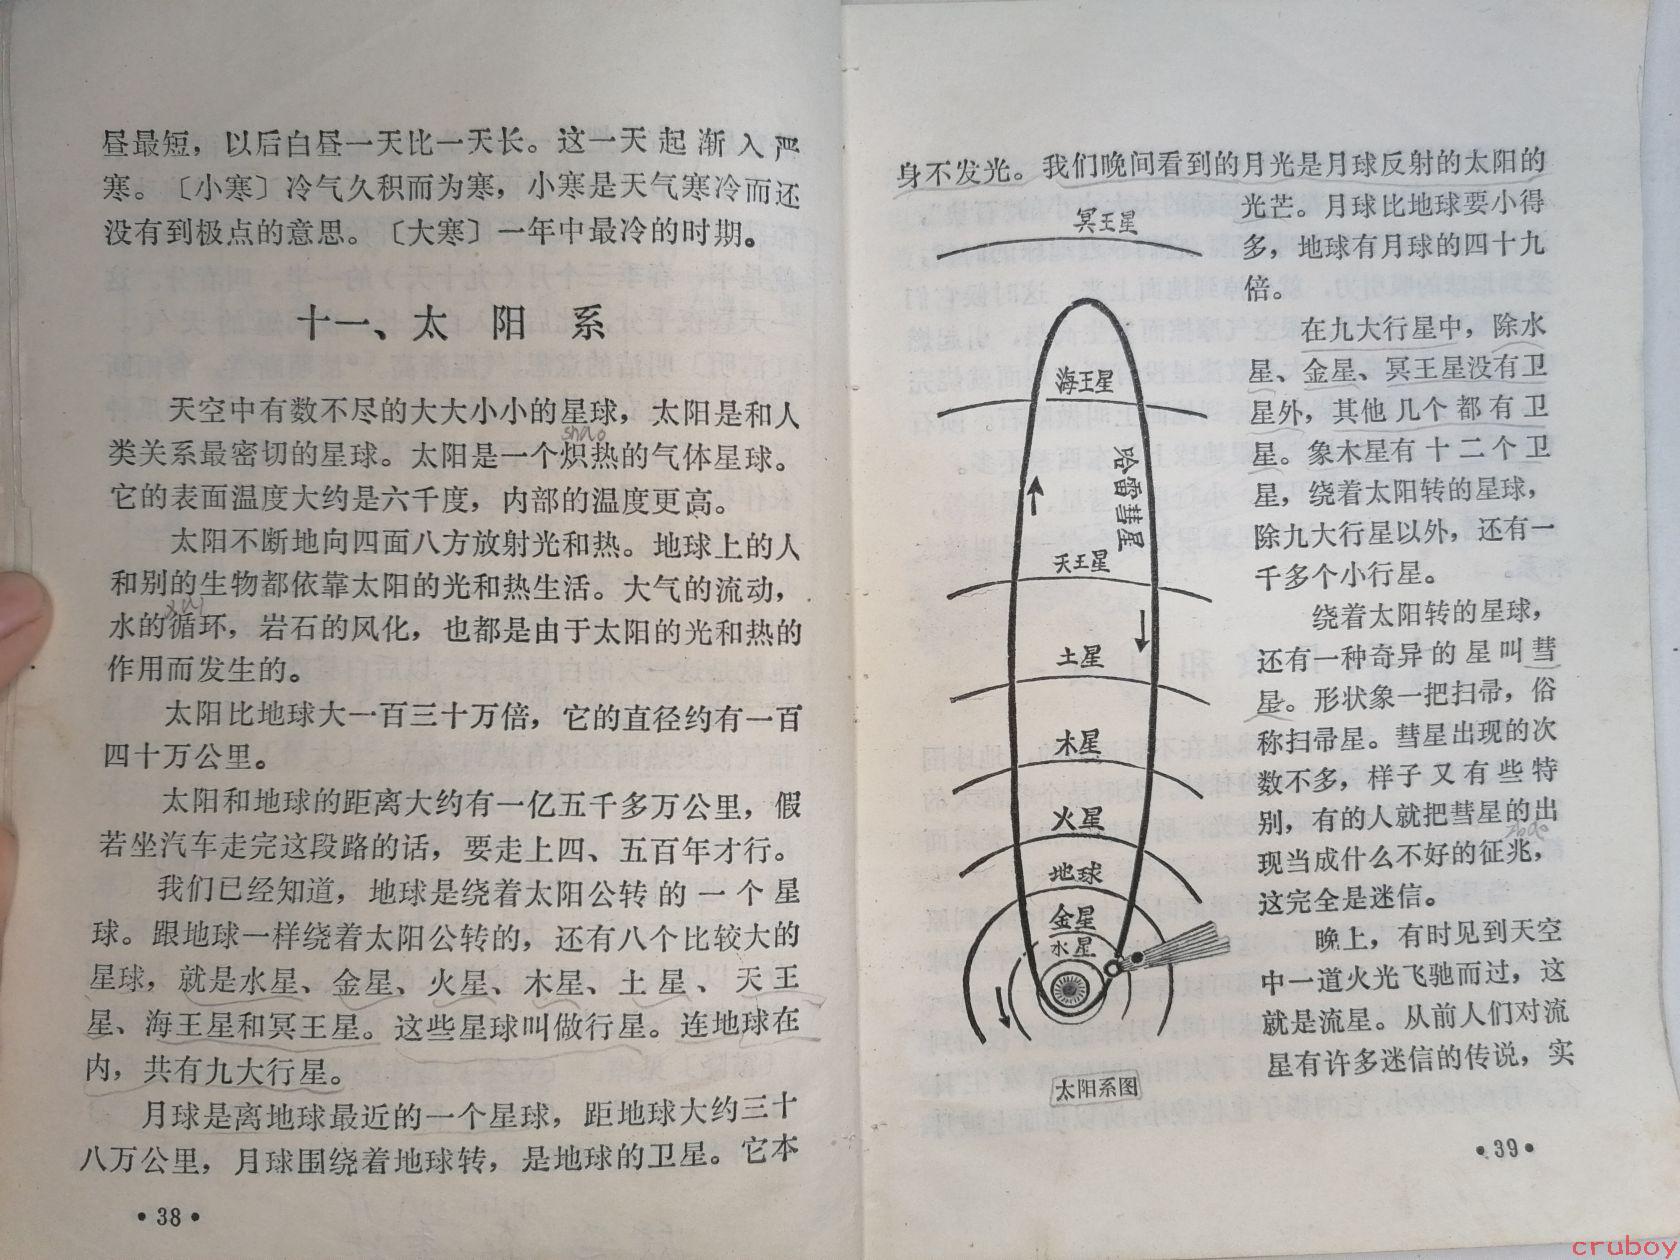 昼最短，以后白昼一天比一天长。这一天起渐入严
寒。〔小寒〕冷气久积而为寒，小寒是天气寒冷而还
没有到极点的意思。〔大寒〕一年中最冷的时期。
十一、太阳系
天空中有数不尽的大大小小的星球，太阳是和人
类关系最密切的星球。太阳是一个炽热的气体星球。
它的表面温度大约是六千度，内部的温度更高。
太阳不断地向四面八方放射光和热。地球上的人
和别的生物都依靠太阳的光和热生活。大气的流动，
水的循环，岩石的风化，也都是由于太阳的光和热的
作用而发生的。
太阳比地球大一百三十万倍，它的直径约有一百
四十万公里。
太阳和地球的距离大约有一亿五千多万公里，假
若坐汽车走完这段路的话，要走上四、五百年才行。
我们已经知道，地球是绕着太阳公转的一个星
球。跟地球一样绕着太阳公转的，还有八个比较大的
星球，就是水星、金星、火星、木星、土星、天王
星、海王星和冥王星。这些星球叫做行星。连地球在
内，共有九大行星。
月球是离地球最近的一个星球，距地球大约三十
八万公里，月球围绕着地球转，是地球的卫星。它本
•38•
身不发光。我们晚间看到的月光是月球反射的太阳的
光芒。月球比地球要小得
多，地球有月球的四十九
倍。
在九大行星中，除水
星、金星、冥王星没有卫
星外，其他几个都有卫
星。象木星有十二个卫
星，绕着太阳转的星球，
除九大行星以外，还有一
千多个小行星。
绕着太阳转的星球，
还有一种奇异的星叫彗
星。形状象一把扫帚，俗
称扫帚星。彗星出现的次
数不多，样子又有些特
别，有的人就把彗星的出
现当成什么不好的征兆，
这完全是迷信。
晚上，有时见到天空
中一道火光飞驰而过，这
就是流星。从前人们对流
星有许多迷信的传说，实
冥王星
海王星
哈雷彗星
天王星
土星
木星
火星
地球
金星
水星
太阳系图
•39•
cruboy